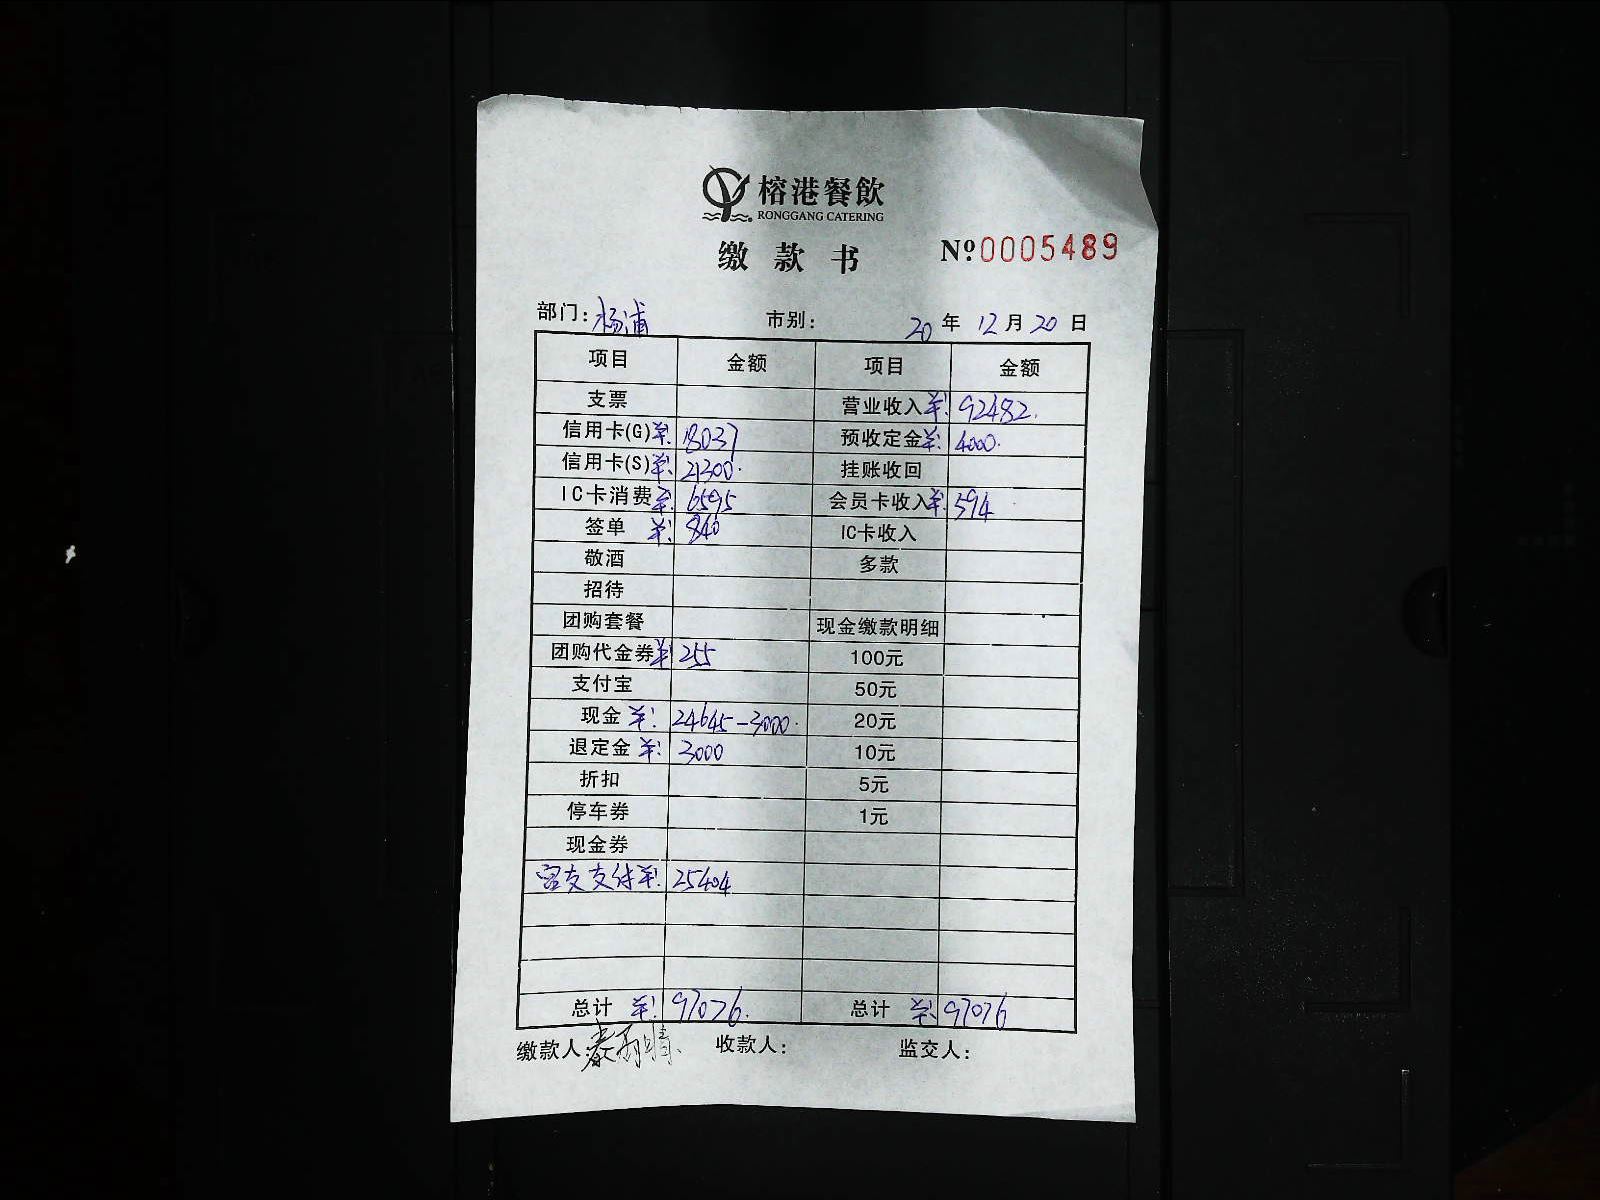 榕港餐飲
RONGGANG CATERING
缴款书 №0005489
部门: 杨浦 市别: 20年 12月20日
项目 金额 项目 金额
支票 营业收入 ¥: 92482.
信用卡(G) ¥: 18037 预收定金 ¥: 4000.
信用卡(S) ¥: 21300. 挂账收回
IC卡消费 ¥: 6595 会员卡收入 ¥: 594
签单 ¥: 840 IC卡收入
敬酒 多款
招待
团购套餐 现金缴款明细
团购代金券 ¥: 255 100元
支付宝 50元
现金 ¥: 24645-3000. 20元
退定金 ¥: 3000 10元
折扣 5元
停车券 1元
现金券
支付 ¥: 25404
总计 ¥: 97076. 总计 ¥: 97076
缴款人: 收款人: 监交人: